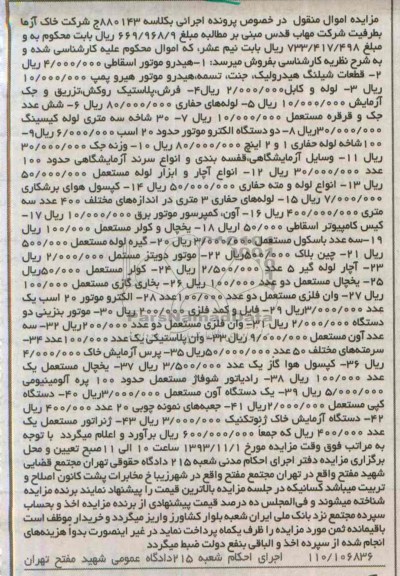 مزایده اموال منقول در خصوص پرونده اجرائی بکلاسه ۸۸۰۱۴۳ج شرکت خاک آزما
بطرفیت شرکت مهاب قدس مبنی بر مطالبه مبلغ ۶۶۹/۹۶۸/۹ ریال بابت محکوم به و
مبلغ ۷۳۳/۴۱۷/۴۹۸ ریال بابت نیم عشر، که اموال محکوم علیه کارشناسی شده و
به شرح نظریه کارشناسی بفروش میرسد: ۱-هیدرو موتور اسقاطی ۴/۰۰۰/۰۰۰ ریال
۲- قطعات شیلنگ هیدرولیک، جنت، تسمه،هیدرو موتور هیرو پمپ ۱۰/۰۰۰/۰۰۰
ریال ۳- لوله و کابل ۲/۰۰۰/۰۰۰ ریال۴- فرش،پلاستیک روکش،تزریق و جک
آزمایش ۱۰/۰۰۰/۰۰۰ ریال ۵- لوله‌های حفاری ۸۰/۰۰۰/۰۰۰ ریال ۶- شش عدد
جک و قرقره مستعمل ۱۰/۰۰۰/۰۰۰ ریال ۷- ۳۰ شاخه سه متری لوله کیسینگ
۳۰/۰۰۰/۰۰۰ریال ۸- دو دستگاه الکترو موتور حدود ۲۰ اسب ۶/۰۰۰/۰۰۰ ریال۹-
۱۰۰شاخه لوله حفاری ۱ و ۲ اینچ ۸۰/۰۰۰/۰۰۰ ریال ۱۰- وزنه جک ۳۰/۰۰۰/۰۰۰
ریال ۱۱- وسایل آزمایشگاهی،قفسه بندی و انواع سرند آزمایشگاهی حدود ۱۰۰
عدد ۳۰/۰۰۰/۰۰۰ ریال ۱۲- انواع آچار و ابزار لوله مستعمل ۵۰/۰۰۰/۰۰۰
ریال ۱۳- انواع لوله و مته حفاری ۵۰/۰۰۰/۰۰۰ ریال ۱۴- کپسول هوای برشکاری
۷/۰۰۰/۰۰۰ ریال ۱۵- لوله‌های حفاری ۳ متری در اندازه‌های مختلف ۴۰۰ عدد سه
متری ۴۰۰/۰۰۰/۰۰۰ ریال ۱۶- آون، کمپرسور موتور برق ۱۰/۰۰۰/۰۰۰ ریال ۱۷-
کیس کامپیوتر اسقاطی ۵۰/۰۰۰ ریال ۱۸- یخچال و کولر مستعمل ۱۰۰/۰۰۰ ریال
۱۹-سه عدد باسکول مستعمل ریال ۲۰- گیره لوله مستعمل ۵۰۰/۰۰۰
ریال ۲۱- چین بلاک ریال ۲۲- موتور دویتز مستمل ۲/۰۰۰/۰۰۰ ریال
۲۳- آچار لوله گیر ۵ عدد ۲/۵۰۰/۰۰۰ ریال ۲۴- کولر مستعمل ۵۰/۰۰۰ریال
۲۵- یخچال مستعمل دو عدد ۱۰۰/۰۰۰ ریال ۲۶- بخاری گازی مستعمل ۱۰۰/۰۰۰
ریال ۲۷- وان فلزی مستعمل دو عدد عدد ۲۸- الکترو موتور ۲۰ اسب یک
عدد ۳/۰۰۰/۰۰۰ریال ۲۹- فایل و کمد فلزی ۲۰۰/۰۰۰ ریال ۳۰- موتور بنزینی دو
دستگاه ۲/۰۰۰/۰۰۰ ریال ۳۱- وان فلزی مستعمل دو عدد ۲۰۰/۰۰۰ریال ۳۲- سه
عدد آون مستعمل ۹/۰۰۰/۰۰۰ ریال۳۳- وان پلاستیکی یک عدد ۱۰۰/۰۰۰عدد ۳۴-
سرمته‌های مختلف ۵۰ عدد ۵۰/۰۰۰/۰۰۰ریال ۳۵- پرس آزمایش خاک ۴/۰۰۰/۰۰۰
ریال ۳۶- کپسول هوا گاز یک عدد ۳/۵۰۰/۰۰۰ ریال ۳۷- یخچال مستعمل یک
عدد ۱۰۰/۰۰۰ ریال ۳۸- رادیاتور شوفاژ مستعمل حدود ۱۰۰ پره آلومینیومی
۵/۰۰۰/۰۰۰ ریال ۳۹- یک دستگاه آون مستعمل ۳/۰۰۰/۰۰۰ریال ۴۰- دستگاه
کپی مستعمل ۲/۰۰۰/۰۰۰ریال ۴۱- جعبه‌های نمونه چوبی ۲۰ عدد ۴۰۰/۰۰۰ ریال
۴۲- دستگاه آزمایش خاک ژئوتکنیک ۳/۰۰۰/۰۰۰ ریال ۴۳- ژنراتور مستعمل یک
عدد ۴۰۰/۰۰۰ ریال که جمعا ۶۰۰/۰۰۰/۰۰۰ ریال برآورد و اعلام میگردد با توجه
به مراتب فوق وقت مزایده مورخ ۱۳۹۳/۱۱/۱ ساعت ۱۰ الی ۱۱صبح تعیین و محل
برگزاری مزایده دفتر اجرای احکام مدنی شعبه ۲۱۵ دادگاه حقوقی تهران مجتمع قضایی
شهید مفتح واقع در تهران مجتمع مفتح واقع در شهرزیبا خ مخابرات پشت کانون اصلاح و
تربیت میباشد کسانیکه در جلسه مزایده بالاترین قیمت را پیشنهاد نمایند برنده مزایده
شناخته میشوند و فی‌المجلس ده درصد قیمت پیشنهادی از برنده مزایده اخذ و بحساب
سپرده مجتمع نزد بانک ملی ایران شعبه بلوار کشاورز واریز میگردد و خریدار موظف است
باقیمانده ثمن مورد مزایده را ظرف یکماه پرداخت نماید در غیر اینصورت بدوا هزینه‌های
انجام شده از سپرده اخذ و الباقی بنفع دولت ضبط میگردد
۱۱۰/۱۰۶۸۳۶ اجرای احکام شعبه ۲۱۵دادگاه عمومی شهید مفتح تهران